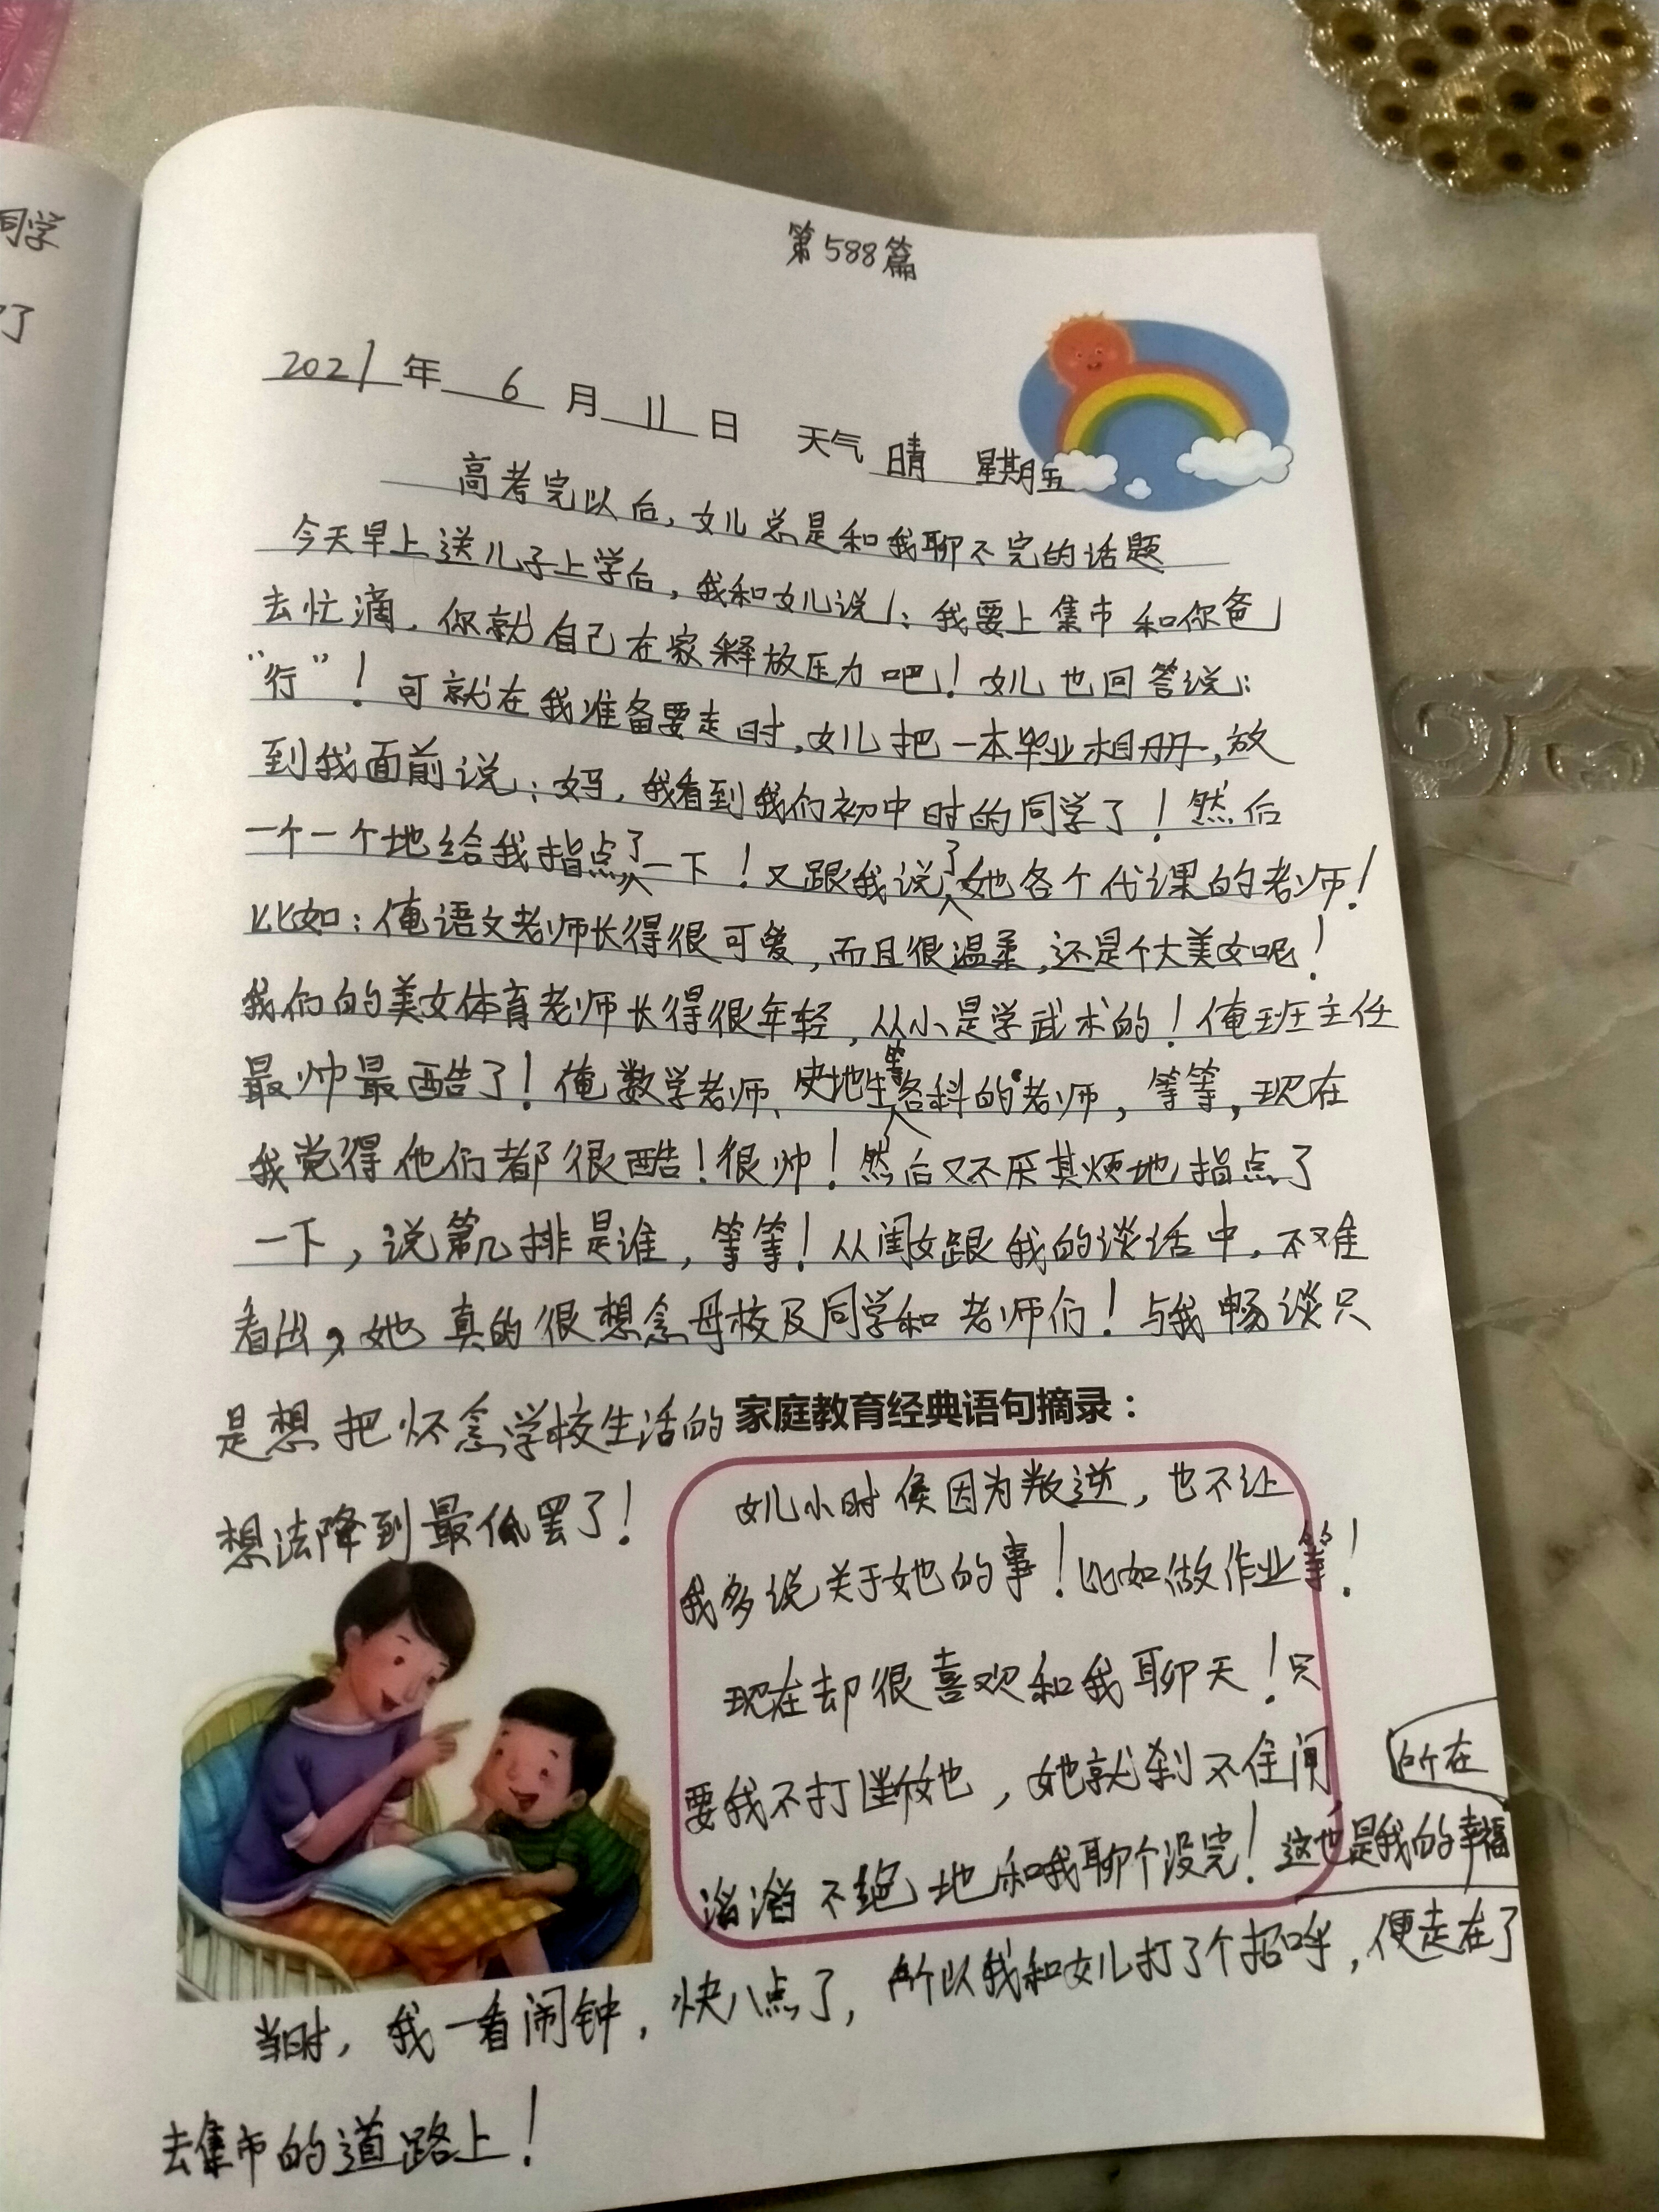 同学
了
第588篇
2021年 6 月 11 日 天气 晴 星期五
高考完以后，女儿总是和我聊不完的话题
今天早上送儿子上学后，我和女儿说：我要上集市和你爸
去忙滴，你就自己在家释放压力吧！女儿也回答说：
“行”！可就在我准备要走时，女儿把一本毕业相册，放
到我面前说：妈，我看到我们初中时的同学了！然后
一个一个地给我指点了一下！又跟我说了她各个代课的老师！
比如：俺语文老师长得很可爱，而且很温柔，还是个大美女呢！
我们的美女体育老师长得很年轻，从小是学武术的！俺班主任
最帅最酷了！俺数学老师、史地生等各科的老师，等等，现在
我觉得他们都很酷！很帅！然后又不厌其烦地指点了
一下，说第几排是谁，等等！从闺女跟我的谈话中，不难
看出，她真的很想念母校及同学和老师们！与我畅谈只
是想把怀念学校生活的
想法降到最低罢了！
家庭教育经典语句摘录：
女儿小时候因为叛逆，也不让
我多说关于她的事！比如做作业等！
现在却很喜欢和我聊天！只
要我不打断她，她就刹不住闸
滔滔不绝地和我聊个没完！这也是我的幸福
所在
当时，我一看闹钟，快八点了，所以我和女儿打了个招呼，便走在了
去集市的道路上！